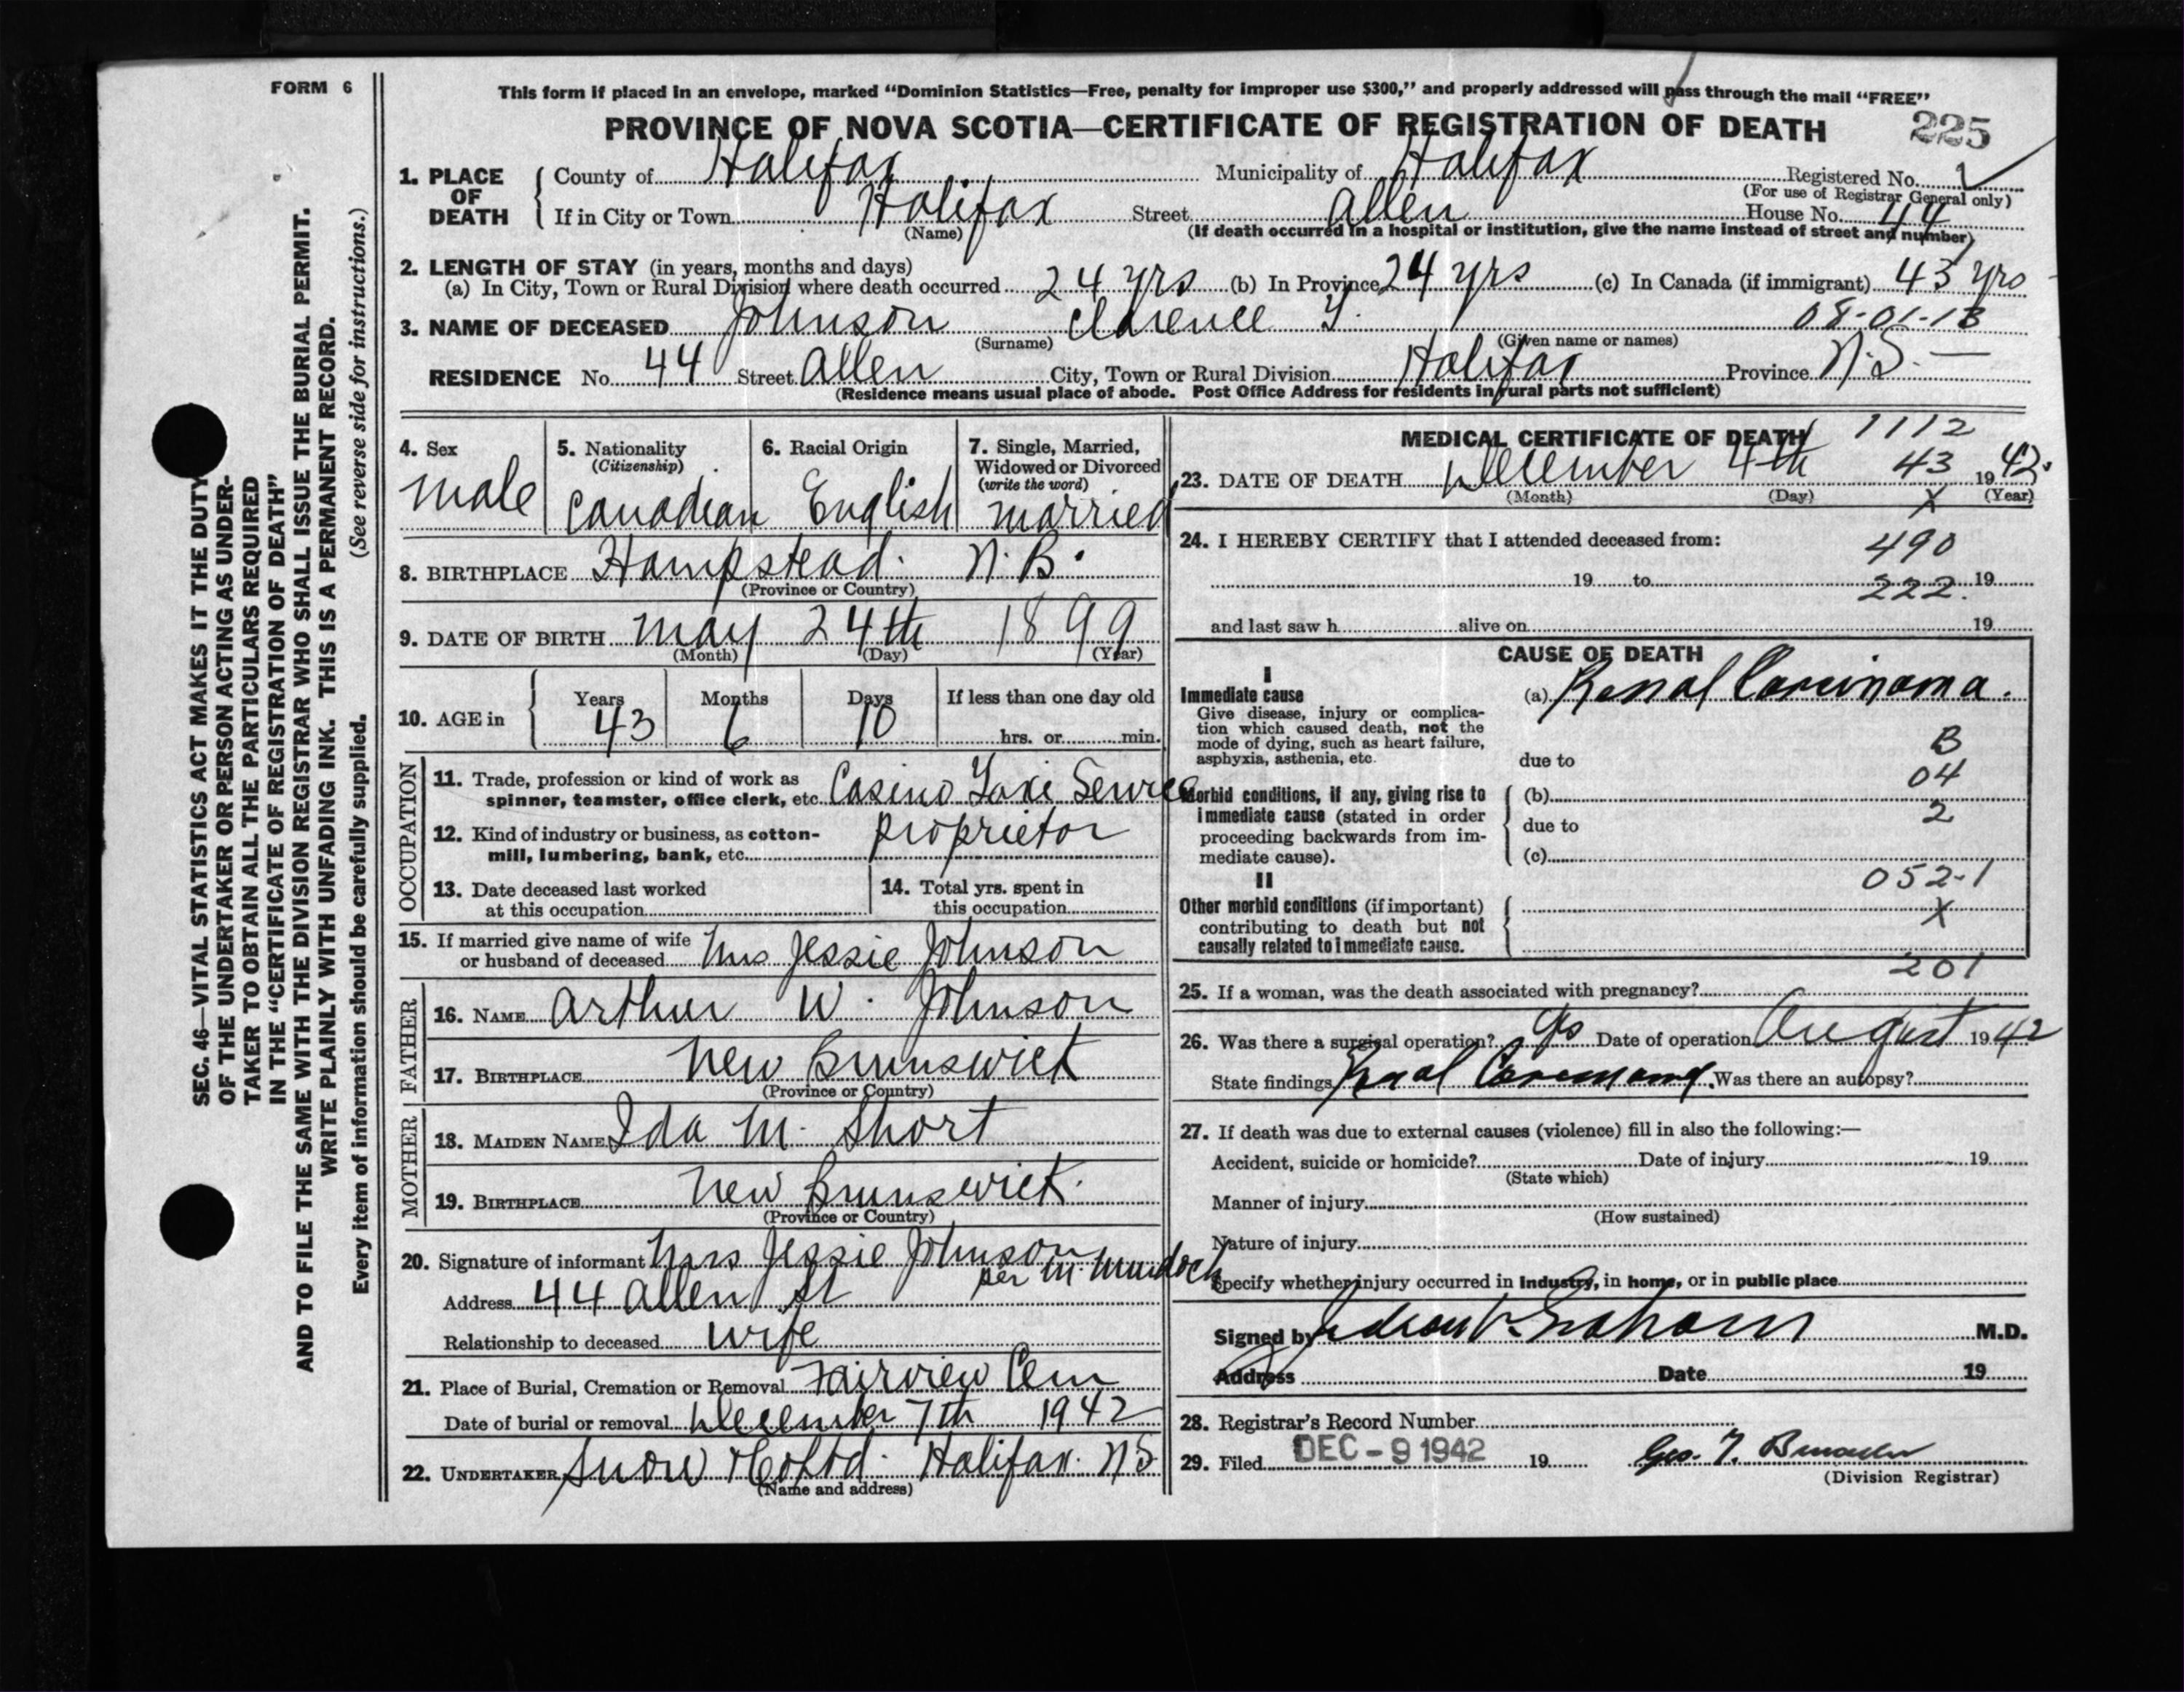 FORM 6
This form if placed in an envelope, marked “Dominion Statistics—Free, penalty for improper use $300,” and properly addressed will pass through the mail “FREE”
PROVINCE OF NOVA SCOTIA—CERTIFICATE OF REGISTRATION OF DEATH 225
1. PLACE OF DEATH
County of Halifax Municipality of Halifax Registered No.
(For use of Registrar General only)
If in City or Town Halifax Street Allen House No. 44
(Name) (If death occurred in a hospital or institution, give the name instead of street and number)
2. LENGTH OF STAY (in years, months and days)
(a) In City, Town or Rural Division where death occurred 24 yrs (b) In Province 24 yrs (c) In Canada (if immigrant) 43 yrs
3. NAME OF DECEASED Johnson Clarence Y. 08-01-13
(Surname) (Given name or names)
RESIDENCE No. 44 Street Allen City, Town or Rural Division Halifax Province N.S.
(Residence means usual place of abode. Post Office Address for residents in rural parts not sufficient)
4. Sex
male
5. Nationality
(Citizenship)
Canadian
6. Racial Origin
English
7. Single, Married,
Widowed or Divorced
(write the word)
married
8. BIRTHPLACE Hampstead. N. B.
(Province or Country)
9. DATE OF BIRTH May 24th 1899
(Month) (Day) (Year)
10. AGE in
Years Months Days If less than one day old
43 6 10 hrs. or min.
OCCUPATION
11. Trade, profession or kind of work as
spinner, teamster, office clerk, etc. Casino Taxi Service
12. Kind of industry or business, as cotton-
mill, lumbering, bank, etc. proprietor
13. Date deceased last worked
at this occupation
14. Total yrs. spent in
this occupation
15. If married give name of wife
or husband of deceased Mrs Jessie Johnson
FATHER
16. NAME Arthur W. Johnson
17. BIRTHPLACE New Brunswick
(Province or Country)
MOTHER
18. MAIDEN NAME Ida M. Short
19. BIRTHPLACE New Brunswick.
(Province or Country)
20. Signature of informant Mrs Jessie Johnson
per M. Murdoch
Address 44 Allen St
Relationship to deceased wife
21. Place of Burial, Cremation or Removal Fairview Cem
Date of burial or removal December 7th 1942
22. UNDERTAKER Snow & Co Ltd. Halifax. N S
(Name and address)
MEDICAL CERTIFICATE OF DEATH 1112
43
23. DATE OF DEATH December 4th 1942.
(Month) (Day) X (Year)
24. I HEREBY CERTIFY that I attended deceased from:
490
19 to 19
222.
and last saw h alive on 19
CAUSE OF DEATH
I
Immediate cause
Give disease, injury or complica-
tion which caused death, not the
mode of dying, such as heart failure,
asphyxia, asthenia, etc.
(a) Renal Carcinoma.
due to
B
04
Morbid conditions, if any, giving rise to
immediate cause (stated in order
proceeding backwards from im-
mediate cause).
(b)
due to
2
(c)
II
052-1
Other morbid conditions (if important)
contributing to death but not
causally related to immediate cause.
X
201
25. If a woman, was the death associated with pregnancy?
26. Was there a surgical operation? Yes Date of operation August 1942
State findings Renal Carcinoma Was there an autopsy?
27. If death was due to external causes (violence) fill in also the following:—
Accident, suicide or homicide? Date of injury 19
(State which)
Manner of injury
(How sustained)
Nature of injury
Specify whether injury occurred in industry, in home, or in public place
Signed by Graham M.D.
Address Date 19
28. Registrar's Record Number
29. Filed DEC - 9 1942 19 Geo. T.
(Division Registrar)
SEC. 46—VITAL STATISTICS ACT MAKES IT THE DUTY
OF THE UNDERTAKER OR PERSON ACTING AS UNDER-
TAKER TO OBTAIN ALL THE PARTICULARS REQUIRED
IN THE “CERTIFICATE OF REGISTRATION OF DEATH”
AND TO FILE THE SAME WITH THE DIVISION REGISTRAR WHO SHALL ISSUE THE BURIAL PERMIT.
WRITE PLAINLY WITH UNFADING INK. THIS IS A PERMANENT RECORD.
Every item of information should be carefully supplied. (See reverse side for instructions.)